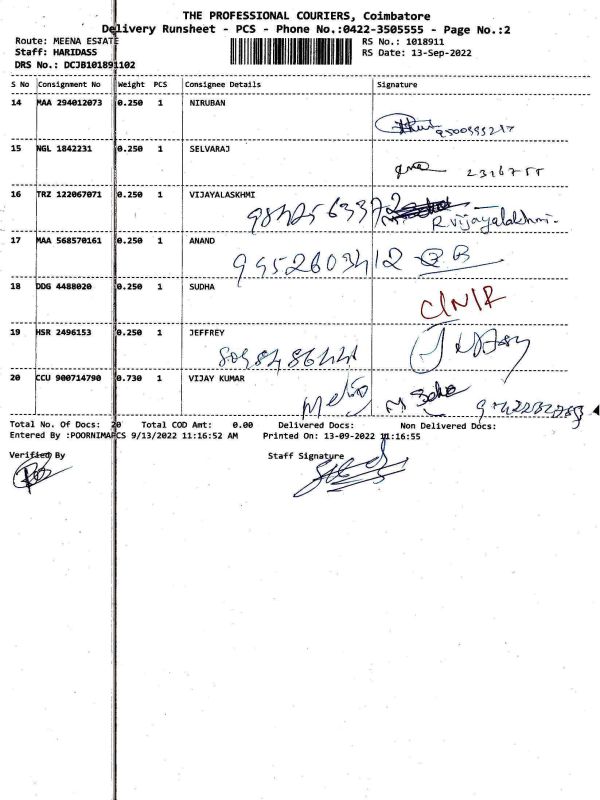 THE PROFESSIONAL COURIERS, Coimbatore
Delivery Runsheet - PCS - Phone No.:0422-3505555 - Page No.:2
Route: MEENA ESTATE RS No.: 1018911
Staff: HARIDASS RS Date: 13-Sep-2022
DRS No.: DCJB101891102
S No Consignment No Weight PCS Consignee Details Signature
14 MAA 294012073 0.250 1 NIRUBAN
15 NGL 1842231 0.250 1 SELVARAJ
2326755
16 TRZ 122067071 0.250 1 VIJAYALASKHMI
R.vijayalakhmi.
17 MAA 568570161 0.250 1 ANAND
9952603412
18 DDG 4488020 0.250 1 SUDHA
19 HSR 2496153 0.250 1 JEFFREY
20 CCU 900714790 0.730 1 VIJAY KUMAR
Total No. Of Docs: 20 Total COD Amt: 0.00 Delivered Docs: Non Delivered Docs:
Entered By :POORNIMAPCS 9/13/2022 11:16:52 AM Printed On: 13-09-2022 11:16:55
Verified By Staff Signature